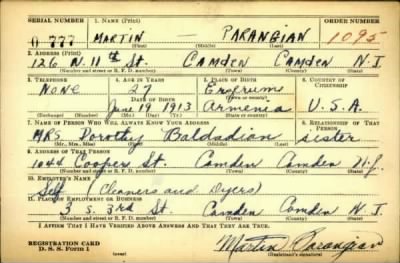 SERIAL NUMBER 1. NAME (Print) ORDER NUMBER
O 777 MARTIN — PARANGIAN 1095
(First) (Middle) (Last)
2. ADDRESS (Print)
126 N. 11th St. Camden Camden N.J
(Number and street or R. F. D. number) (Town) (County) (State)
3. TELEPHONE 4. AGE IN YEARS 5. PLACE OF BIRTH 6. COUNTRY OF CITIZENSHIP
None 27 Erzrums
DATE OF BIRTH (Town or county)
June 19 1913 Armenia U.S.A.
(Exchange) (Number) (Mo.) (Day) (Yr.) (State or country)
7. NAME OF PERSON WHO WILL ALWAYS KNOW YOUR ADDRESS 8. RELATIONSHIP OF THAT PERSON
MRS Dorothy Baldadian sister
(Mr., Mrs., Miss) (First) (Middle) (Last)
9. ADDRESS OF THAT PERSON
1044 Coopers St. Camden Camden N.J.
(Number and street or R. F. D. number) (Town) (County) (State)
10. EMPLOYER'S NAME
Self (Cleaners and Dyers)
11. PLACE OF EMPLOYMENT OR BUSINESS
3 S. 3rd St. Camden Camden N.J.
(Number and street or R. F. D. number) (Town) (County) (State)
I AFFIRM THAT I HAVE VERIFIED ABOVE ANSWERS AND THAT THEY ARE TRUE.
REGISTRATION CARD
D. S. S. Form 1 Martin Parangian
(Registrant's signature)